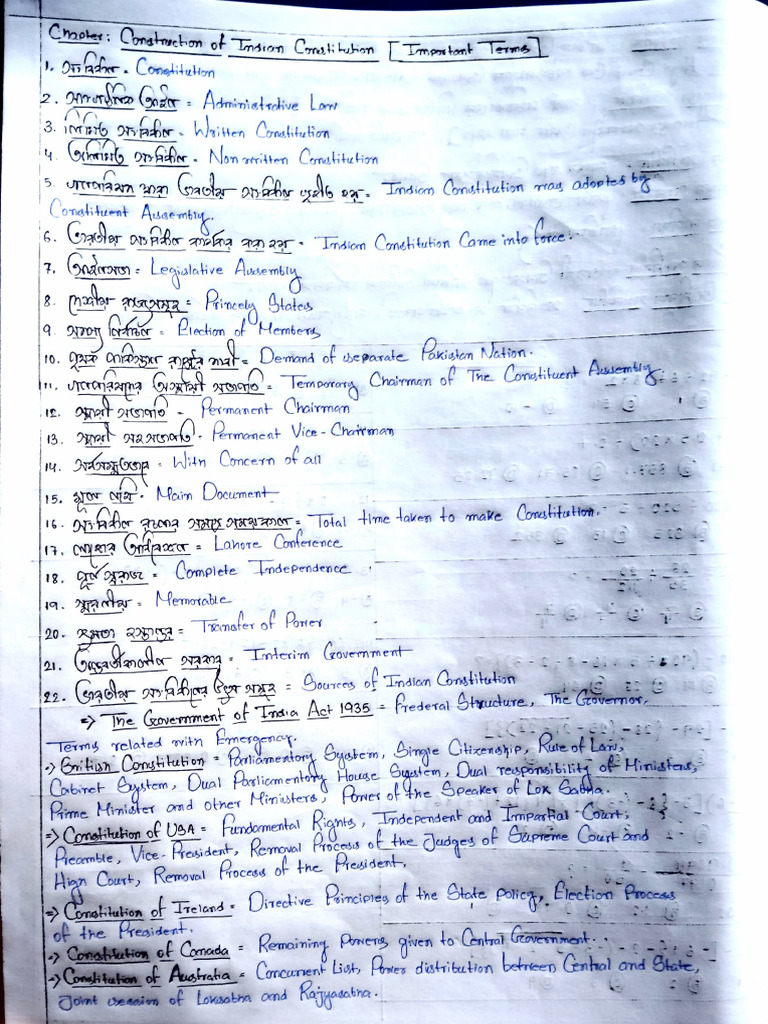 Chapter: Construction of Indian Constitution [Important Terms]
1. সংবিধান = Constitution
2. প্রশাসনিক আইন = Administrative Law
3. লিখিত সংবিধান = Written Constitution
4. অলিখিত সংবিধান = Non written Constitution
5. গণপরিষদ দ্বারা ভারতীয় সংবিধান গৃহীত হয় = Indian Constitution was adopted by
Constituent Assembly.
6. ভারতীয় সংবিধান কার্যকর করা হয় = Indian Constitution Came into force.
7. আইনসভা = Legislative Assembly
8. দেশীয় রাজ্যসমূহ = Princely States
9. সদস্য নির্বাচন = Election of Members
10. পৃথক পাকিস্তান রাষ্ট্রের দাবী = Demand of separate Pakistan Nation.
11. গণপরিষদের অস্থায়ী সভাপতি = Temporary Chairman of The Constituent Assembly.
12. স্থায়ী সভাপতি - Permanent Chairman
13. স্থায়ী সহসভাপতি - Permanent Vice-Chairman
14. সর্বসম্মতভাবে = With Concern of all
15. মূল নথি - Main Document
16. সংবিধান রচনার সমগ্র সময়কাল = Total time taken to make Constitution.
17. লাহোর অধিবেশন = Lahore Conference
18. পূর্ণ স্বরাজ = Complete Independence
19. স্মরণীয় = Memorable
20. ক্ষমতা হস্তান্তর = Transfer of Power
21. অন্তর্বর্তীকালীন সরকার = Interim Government
22. ভারতীয় সংবিধানের উৎস সমূহ = Sources of Indian Constitution
=> The Government of India Act 1935 = Frederal Structure, The Governor,
Terms related with Emergency.
=> British Constitution = Parliamentory System, Single Citizenship, Rule of Law,
Cabinet System, Dual Parliamentory House System, Dual responsibility of Ministers,
Prime Minister and other Ministers, Power of the Speaker of Lok Sabha.
=> Constitution of USA = Fundamental Rights, Independent and Impartial Court,
Preamble, Vice-President, Removal Process of the Judges of Supreme Court and
High Court, Removal Process of the President.
=> Constitution of Ireland = Directive Principles of the State policy, Election Process
of the President.
=> Constitution of Canada = Remaining Powers given to Central Government.
=> Constitution of Australia = Concurrent List, Power distribution between Central and State,
Joint session of Loksabha and Rajyasabha.